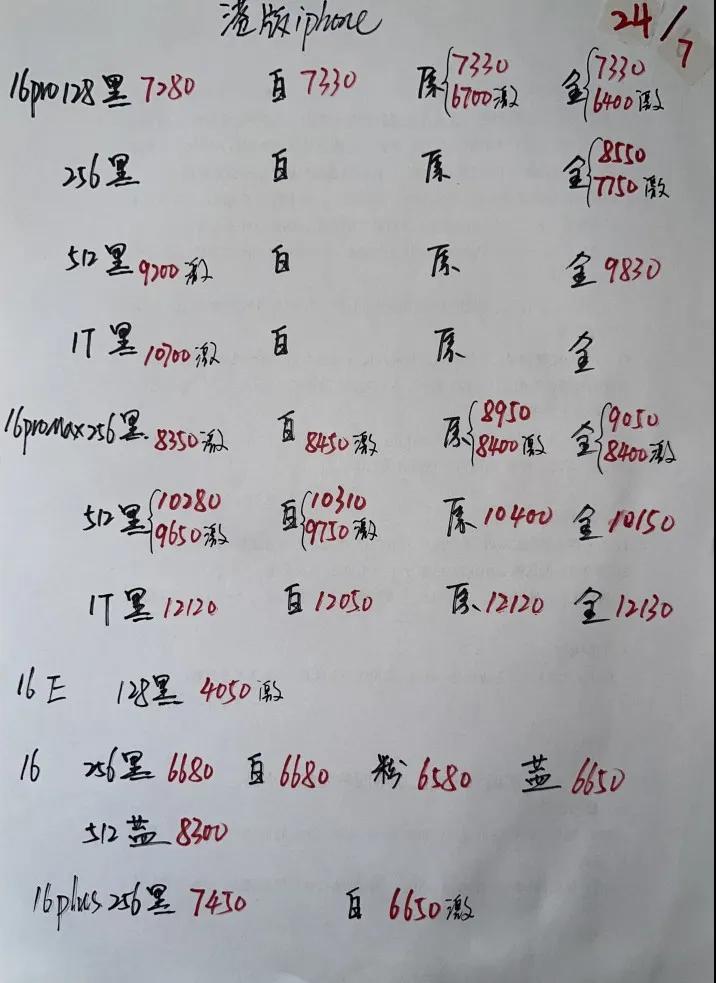 港版iphone
24/7
16pro128黑 7280 白 7330 原{7330 6700激 金{7330 6400激
256黑 白 原 金{8550 7750激
512黑 9200激 白 原 金 9830
1T 黑 10700激 白 原 金
16promax256黑 8350激 白 8450激 原{8950 8400激 金{9050 8400激
512黑{10280 9650激 白{10310 9750激 原 10400 金 10150
1T 黑 12120 白 12050 原 12120 金 12130
16E 128黑 4050激
16 256黑 6680 白 6680 粉 6580 蓝 6650
512蓝 8300
16plus256黑 7450 白 6650激